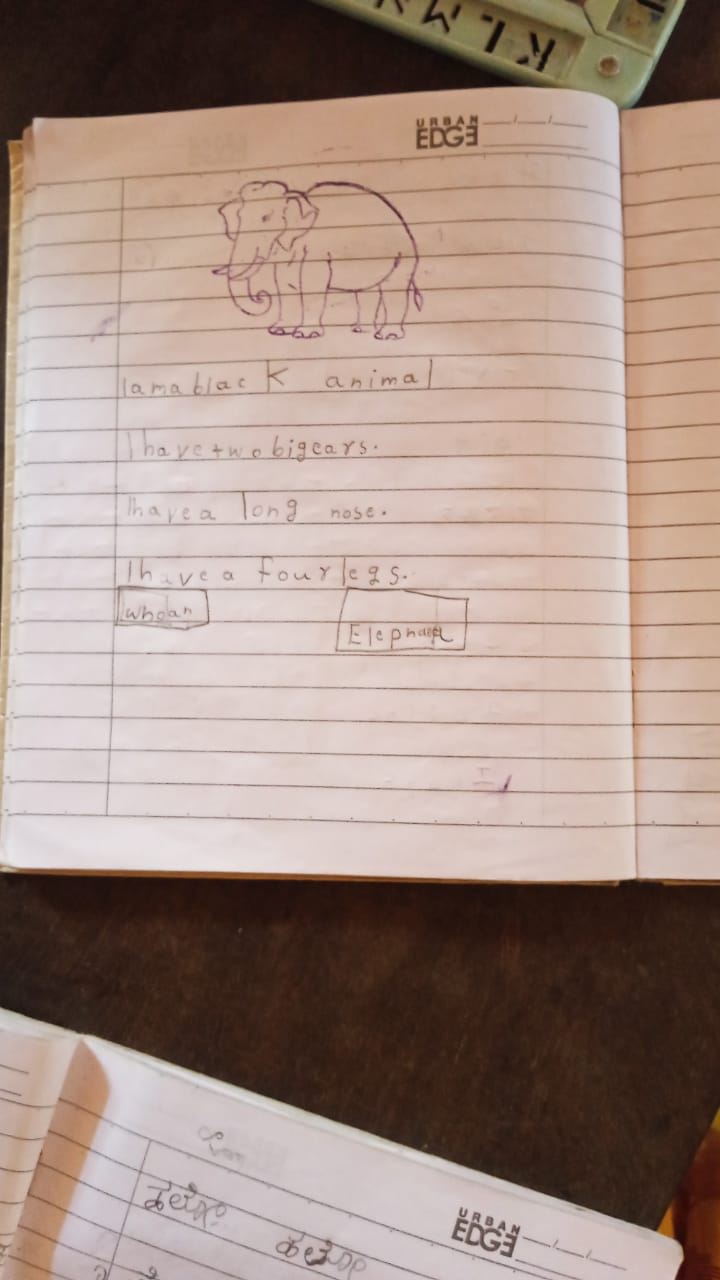 K L M N
URBAN
EDGE
I am a black animal
I have two big ears.
I have a long nose.
I have a four legs.
whoan
Elephant
URBAN
EDGE